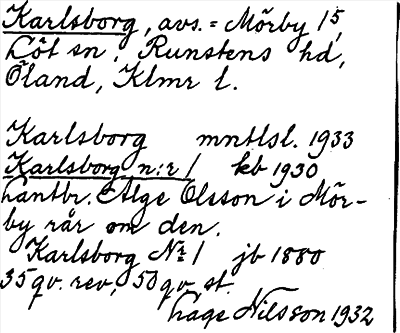 Karlsborg, avs. = Mörby 1⁵,
Löt sn, Runstens hd,
Öland, Klmr l.
Karlsborg mntlsl. 1933
Karlsborg n:r 1 kb 1930
Lantbr. Alge Olsson i Mör-
by rår om den.
Karlsborg Nr 1 jb 1880
35 qv. rev, 50 qv. st.
Låge Nilsson 1932